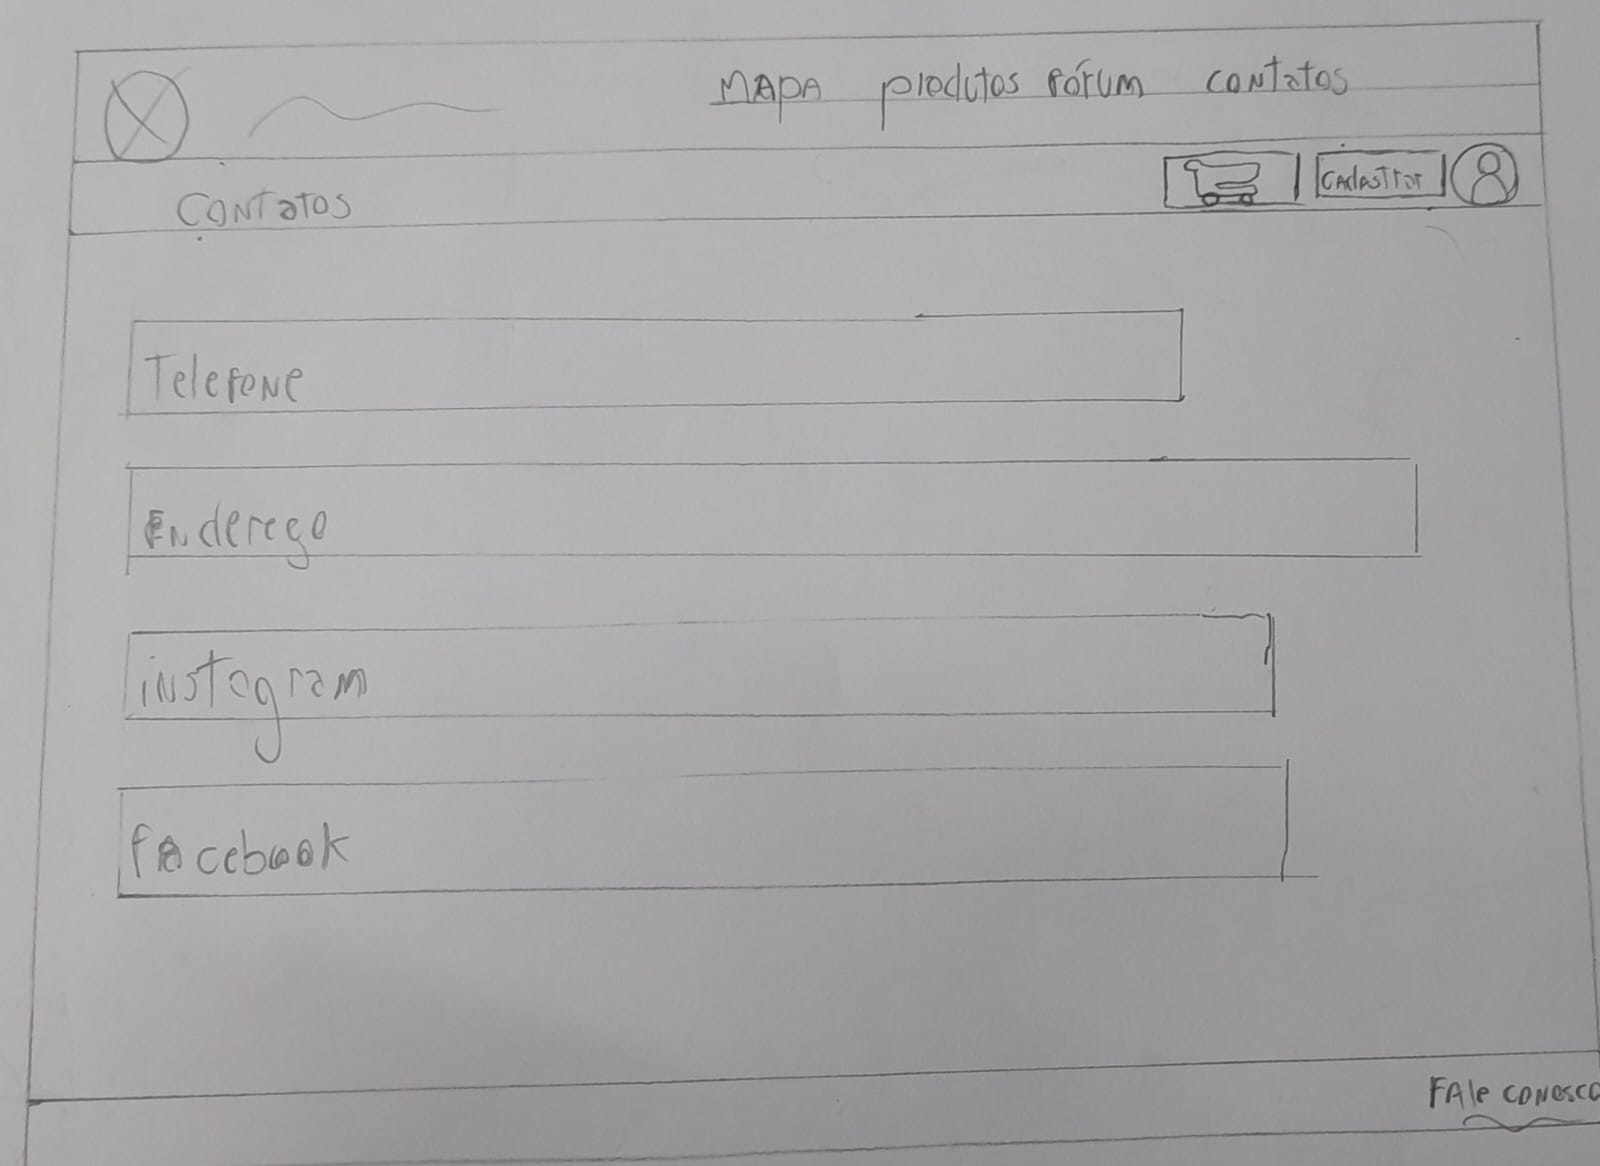 MAPA produtos Fórum contatos
Cadastrar
Contatos
Telefone
Endereço
instagram
facebook
Fale conosco